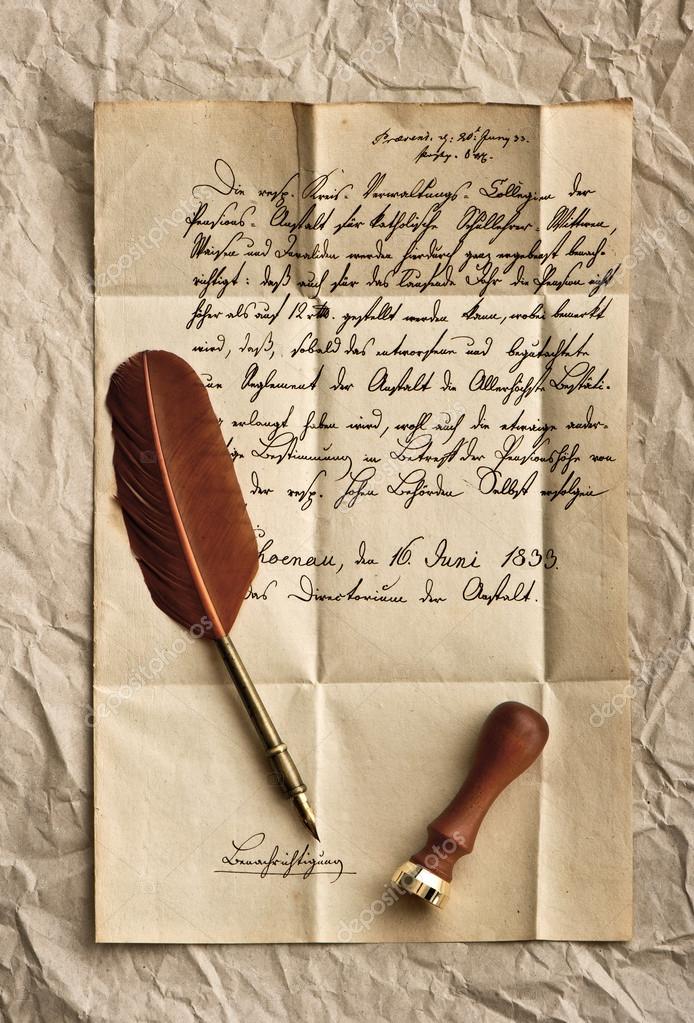 Præsent. d: 20t Juny 33.
Die resp. Kreis-Verwaltungs-Collegien der
Pensions-Anstalt für katholische Schullehrer-Wittwen,
Waisen und Invaliden werden hierdurch ganz ergebenst benach-
richtigt: daß auch für das laufende Jahr die Pension nicht
höher als auf 12 rth. gestellt werden kann, wobei bemerkt
wird, daß, sobald das entworfene und begutachtete
ue Reglement der Anstalt die Allerhöchste Bestäti-
g erlangt haben wird, wohl auch die etwaige ander-
ige Bestimmung in Betreff der Pensionshöhe von
der resp. hohen Behörden Selbst erfolgen
hoenau, den 16. Juni 1833.
das Directorium der Anstalt.
Benachrichtigung
depositphotos